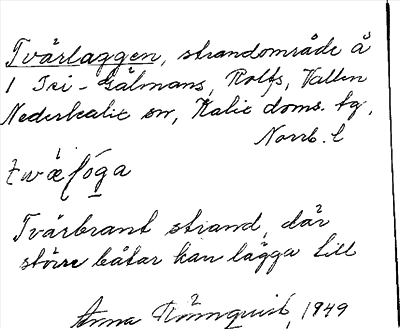 Tvärlaggen, strandområde å
1 Tri- Gälmans, Rolfs, Vallen
Nederkalix sn, Kalix doms. tg,
Norrb. l
Tvärbrant strand, där
större båtar kan lägga till
Anna Rönnquist, 1949